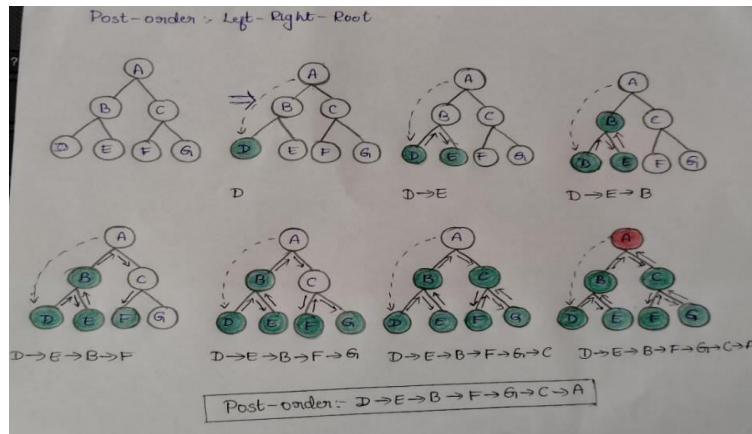 Post-order :- Left-Right-Root
A
B C
D E F G
⇒
A
B C
D E F G
D
A
B C
D E F G
D→E
A
B C
D E F G
D→E→B
A
B C
D E F G
D→E→B→F
A
B C
D E F G
D→E→B→F→G
A
B C
D E F G
D→E→B→F→G→C
A
B C
D E F G
D→E→B→F→G→C→A
Post-order:- D→E→B→F→G→C→A